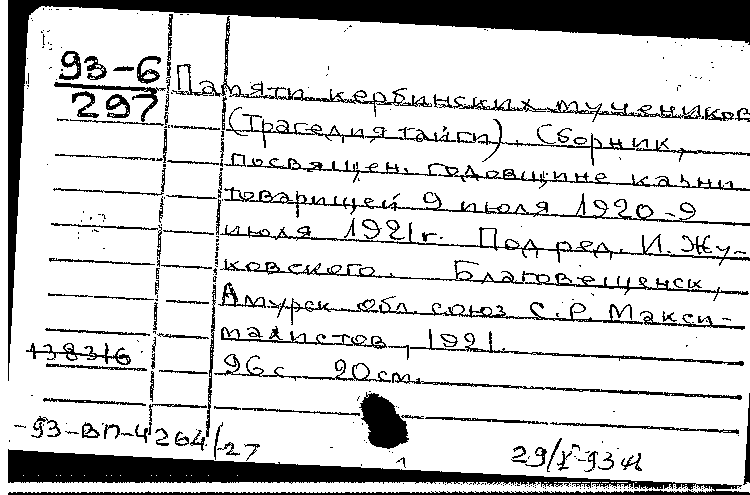 93-6
297
Памяти кербинских мучеников
(Трагедия тайги). Сборник,
посвящен. годовщине казни
товарищей 9 июля 1920-9
июля 1921 г. Под ред. И. Жу-
ковского. Благовещенск,
Амурск. обл. союз С.Р. Макси-
малистов, 1921.
96 с. 20 см.
138316
-93-ВП-4264/-27
29/X-93